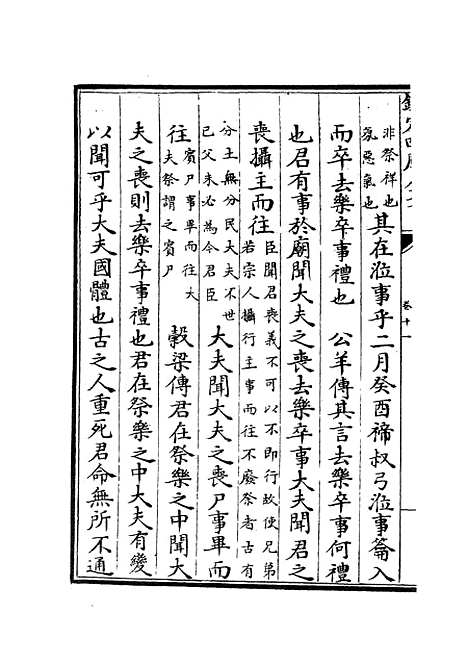 卷十一
非祭祥也
氛惡氣也
其在涖事乎二月癸酉禘叔弓涖事籥入
而卒去樂卒事禮也　公羊傳其言去樂卒事何禮
也君有事於廟聞大夫之喪去樂卒事大夫聞君之
喪攝主而往
臣聞君喪義不可以不即行故使兄弟
若宗人攝行主事而往不廢祭者古有
分土無分民大夫不世
已父未必為今君臣
大夫聞大夫之喪尸事畢而
往
賓尸事畢而往大
夫祭謂之賓尸
穀梁傳君在祭樂之中聞大
夫之喪則去樂卒事禮也君在祭樂之中大夫有變
以聞可乎大夫國體也古之人重死君命無所不通